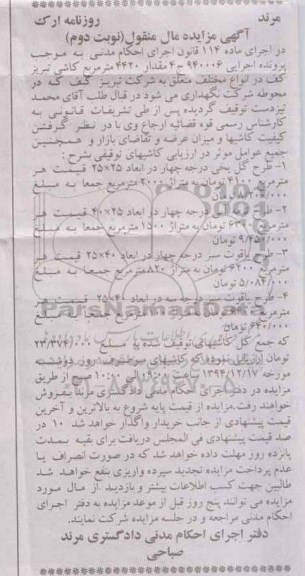 مرند روزنامه ارک
آگهی مزایده مال منقول(نوبت دوم)
در اجرای ماده ۱۱۴ قانون اجرای احکام مدنی به موجب
پرونده اجرایی ۹۴۰۰۰۶ ج ۴ مقدار ۴۴۲۰ مترمربع کاشی تبریز
کف در انواع مختلف متعلق به شرکت تبریز کف که در
محوطه شرکت نگهداری می شود در قبال طلب آقای محمد
تیزدست توقیف گردیده پس از طی تشریفات قانونی به
کارشناس رسمی قوه قضائیه ارجاع وی با در نظر گرفتن
کیفیت کاشیها و میزان عرضه و تقاضای بازار و همچنین
جمیع عوامل موثر در ارزیابی کاشیهای توقیفی بشرح :
۱- طرح گل یخی درجه چهار در ابعاد ۲۵×۲۵ قیمت هر
مترمربع به متراژ مترمربع جمعا به مبلغ
تومان
۲- طرح درجه چهار در ابعاد ۲۵×۴۰ قیمت هر
مترمربع تومان به متراژ ۱۵۰۰ مترمربع جمعا به مبلغ
تومان
۳- طرح یاقوت سبز درجه چهار در ابعاد ۲۵×۴۰ قیمت هر
مترمربع ۶۲۰۰ تومان به متراژ ۸۲۰ مترمربع جمعا به مبلغ
۵/۰۸۴/۰۰۰ تومان
۴- طرح یاقوت سبز درجه سه در ابعاد قیمت هر
مترمربع مترمربع جمعا به مبلغ
۶۴۰/۰۰۰ تومان
که جمع کل کاشیهای توقیف شده به مبلغ
تومان ارزیابی نموده که کاشیهای روز دوشنبه
مورخه ۱۳۹۴/۱۲/۱۷ ساعت الی ۱۰:۰۰ صبح از طریق
مزایده در دفتر اجرای احکام مدنی دادگستری مرند بفروش
خواهند رفت.مزایده از قیمت پایه شروع به بالاترین و آخرین
قیمت پیشنهادی از جانب خریدار واگذار خواهد شد ۱۰ در
صد قیمت پیشنهادی فی المجلس دریافت برای بقیه بمدت
پانزده روز مهلت داده خواهد شد که در صورت انصراف یا
عدم پرداخت مزایده تجدید سپرده واریزی بنفع خواهد شد
طالبین جهت کسب اطلاعات بیشتر و بازدید از مال مورد
مزایده می توانند پنج روز قبل از موعد مزایده به دفتر اجرای
احکام مدنی مراجعه و در جلسه مزایده شرکت نمایند.
دفتر اجرای احکام مدنی دادگستری مرند
صباحی
ParsNamadData